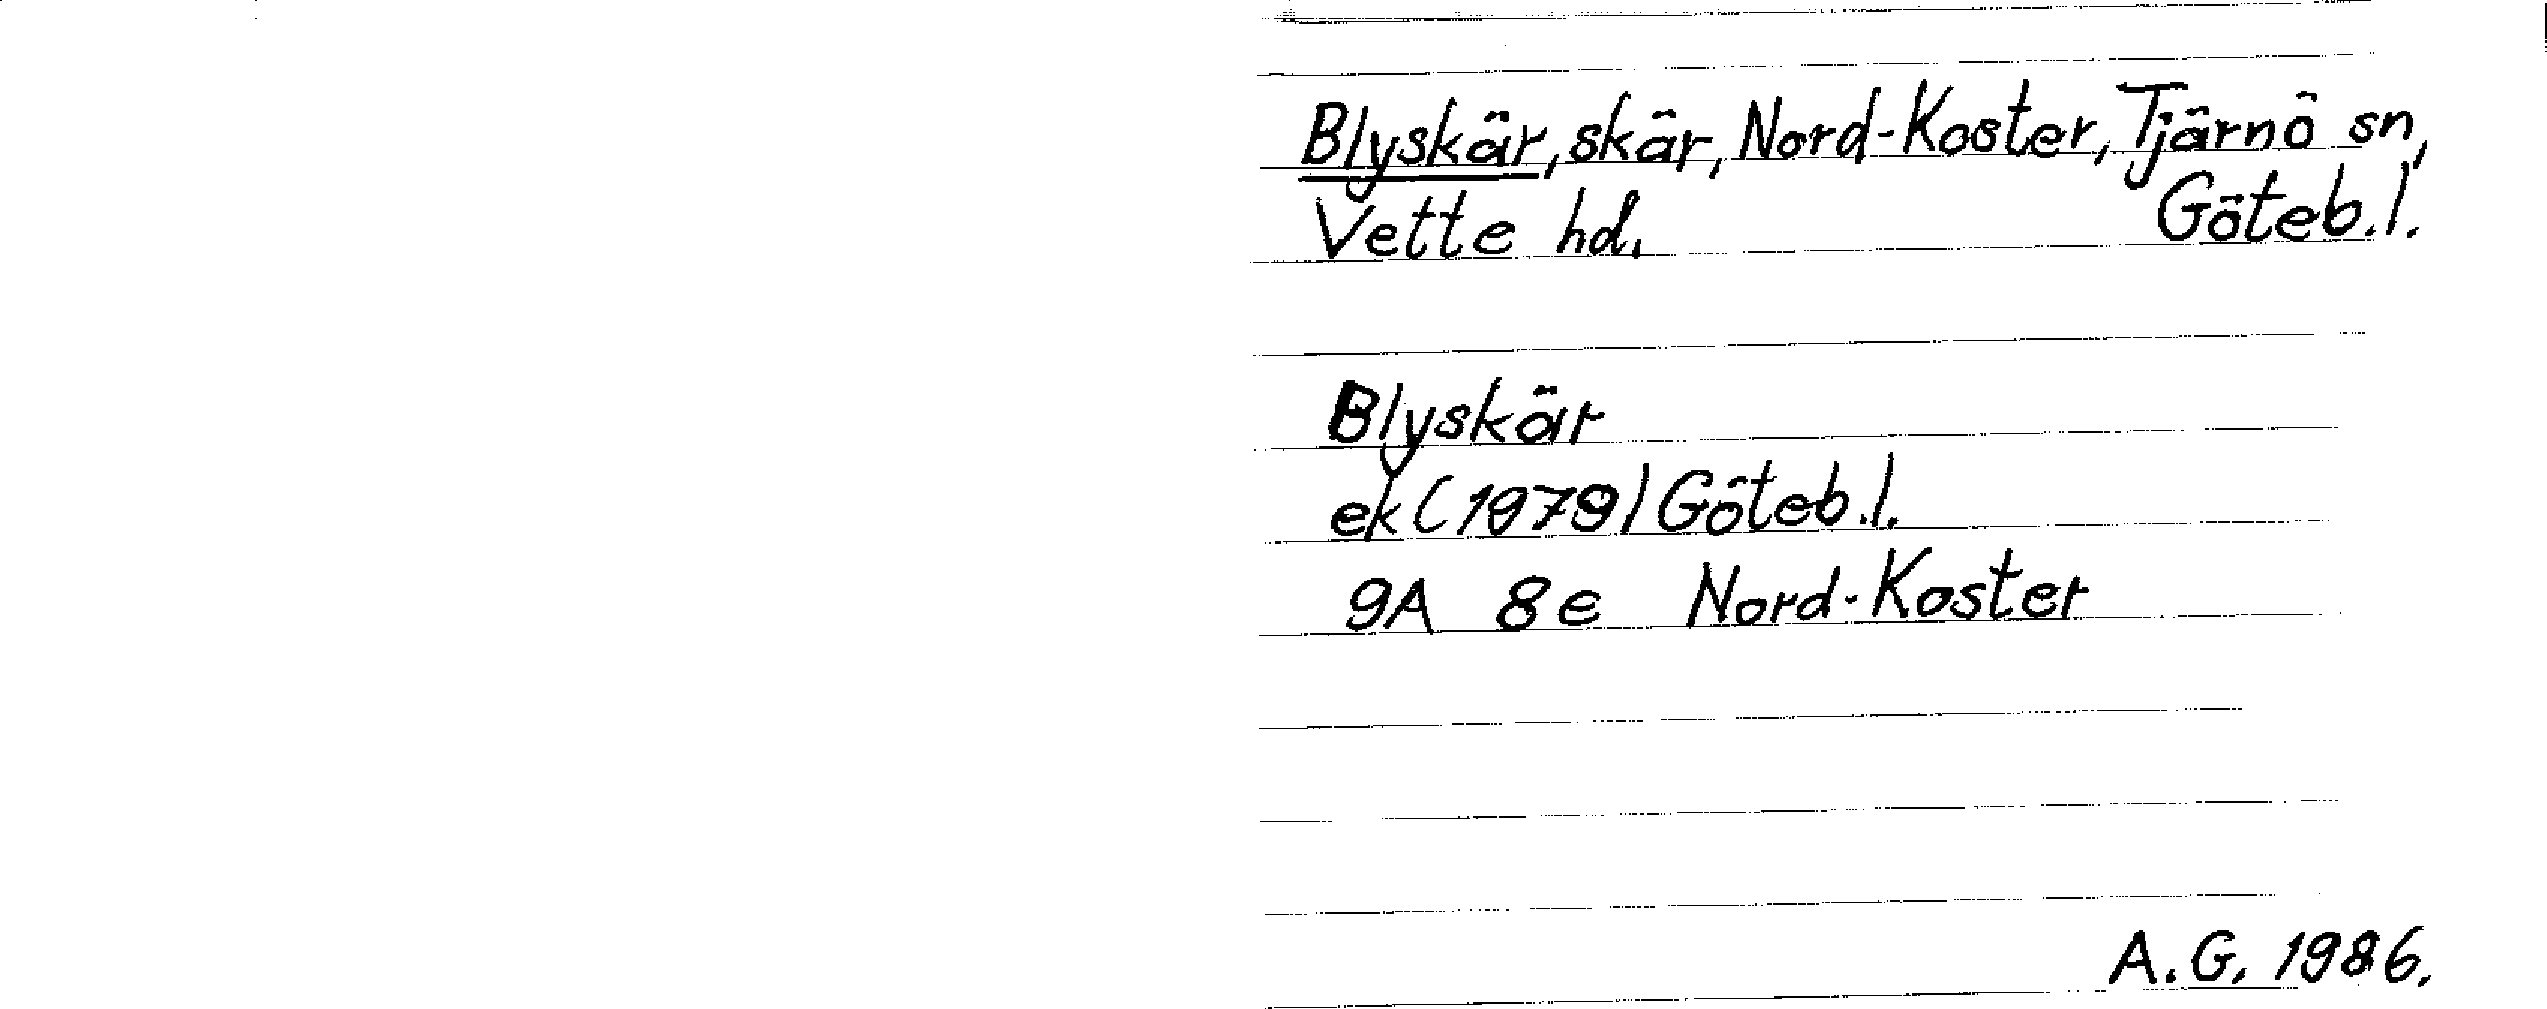 Blyskär, skär, Nord-Koster, Tjärnö sn,
Vette hd. Göteb. l.
Blyskär
ek (1979) Göteb. l.
9A 8e Nord-Koster
A. G. 1986.